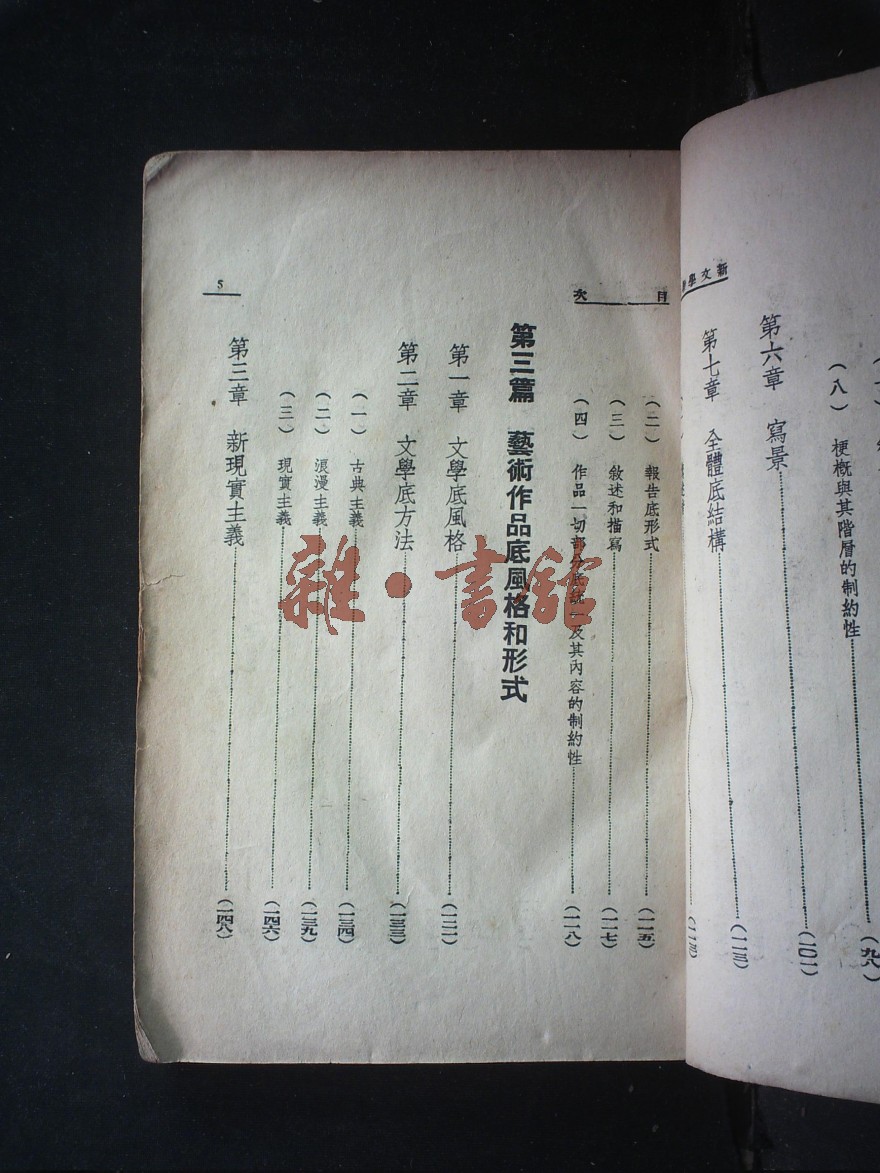 新文學
（八） 梗概與其階層的制約性……（九八）
第六章 寫景……（一〇一）
第七章 全體底結構……（一一三）
（一一三）
目次
（二） 報告底形式……（一一五）
（三） 敘述和描寫……（一一七）
（四） 作品一切部分底統一及其內容的制約性……（一一八）
第三篇 藝術作品底風格和形式
第一章 文學底風格……（一二一）
第二章 文學底方法……（一三三）
（一） 古典主義……（一三四）
（二） 浪漫主義……（一三九）
（三） 現實主義……（一四六）
第三章 新現實主義……（一四八）
5
雜·書館